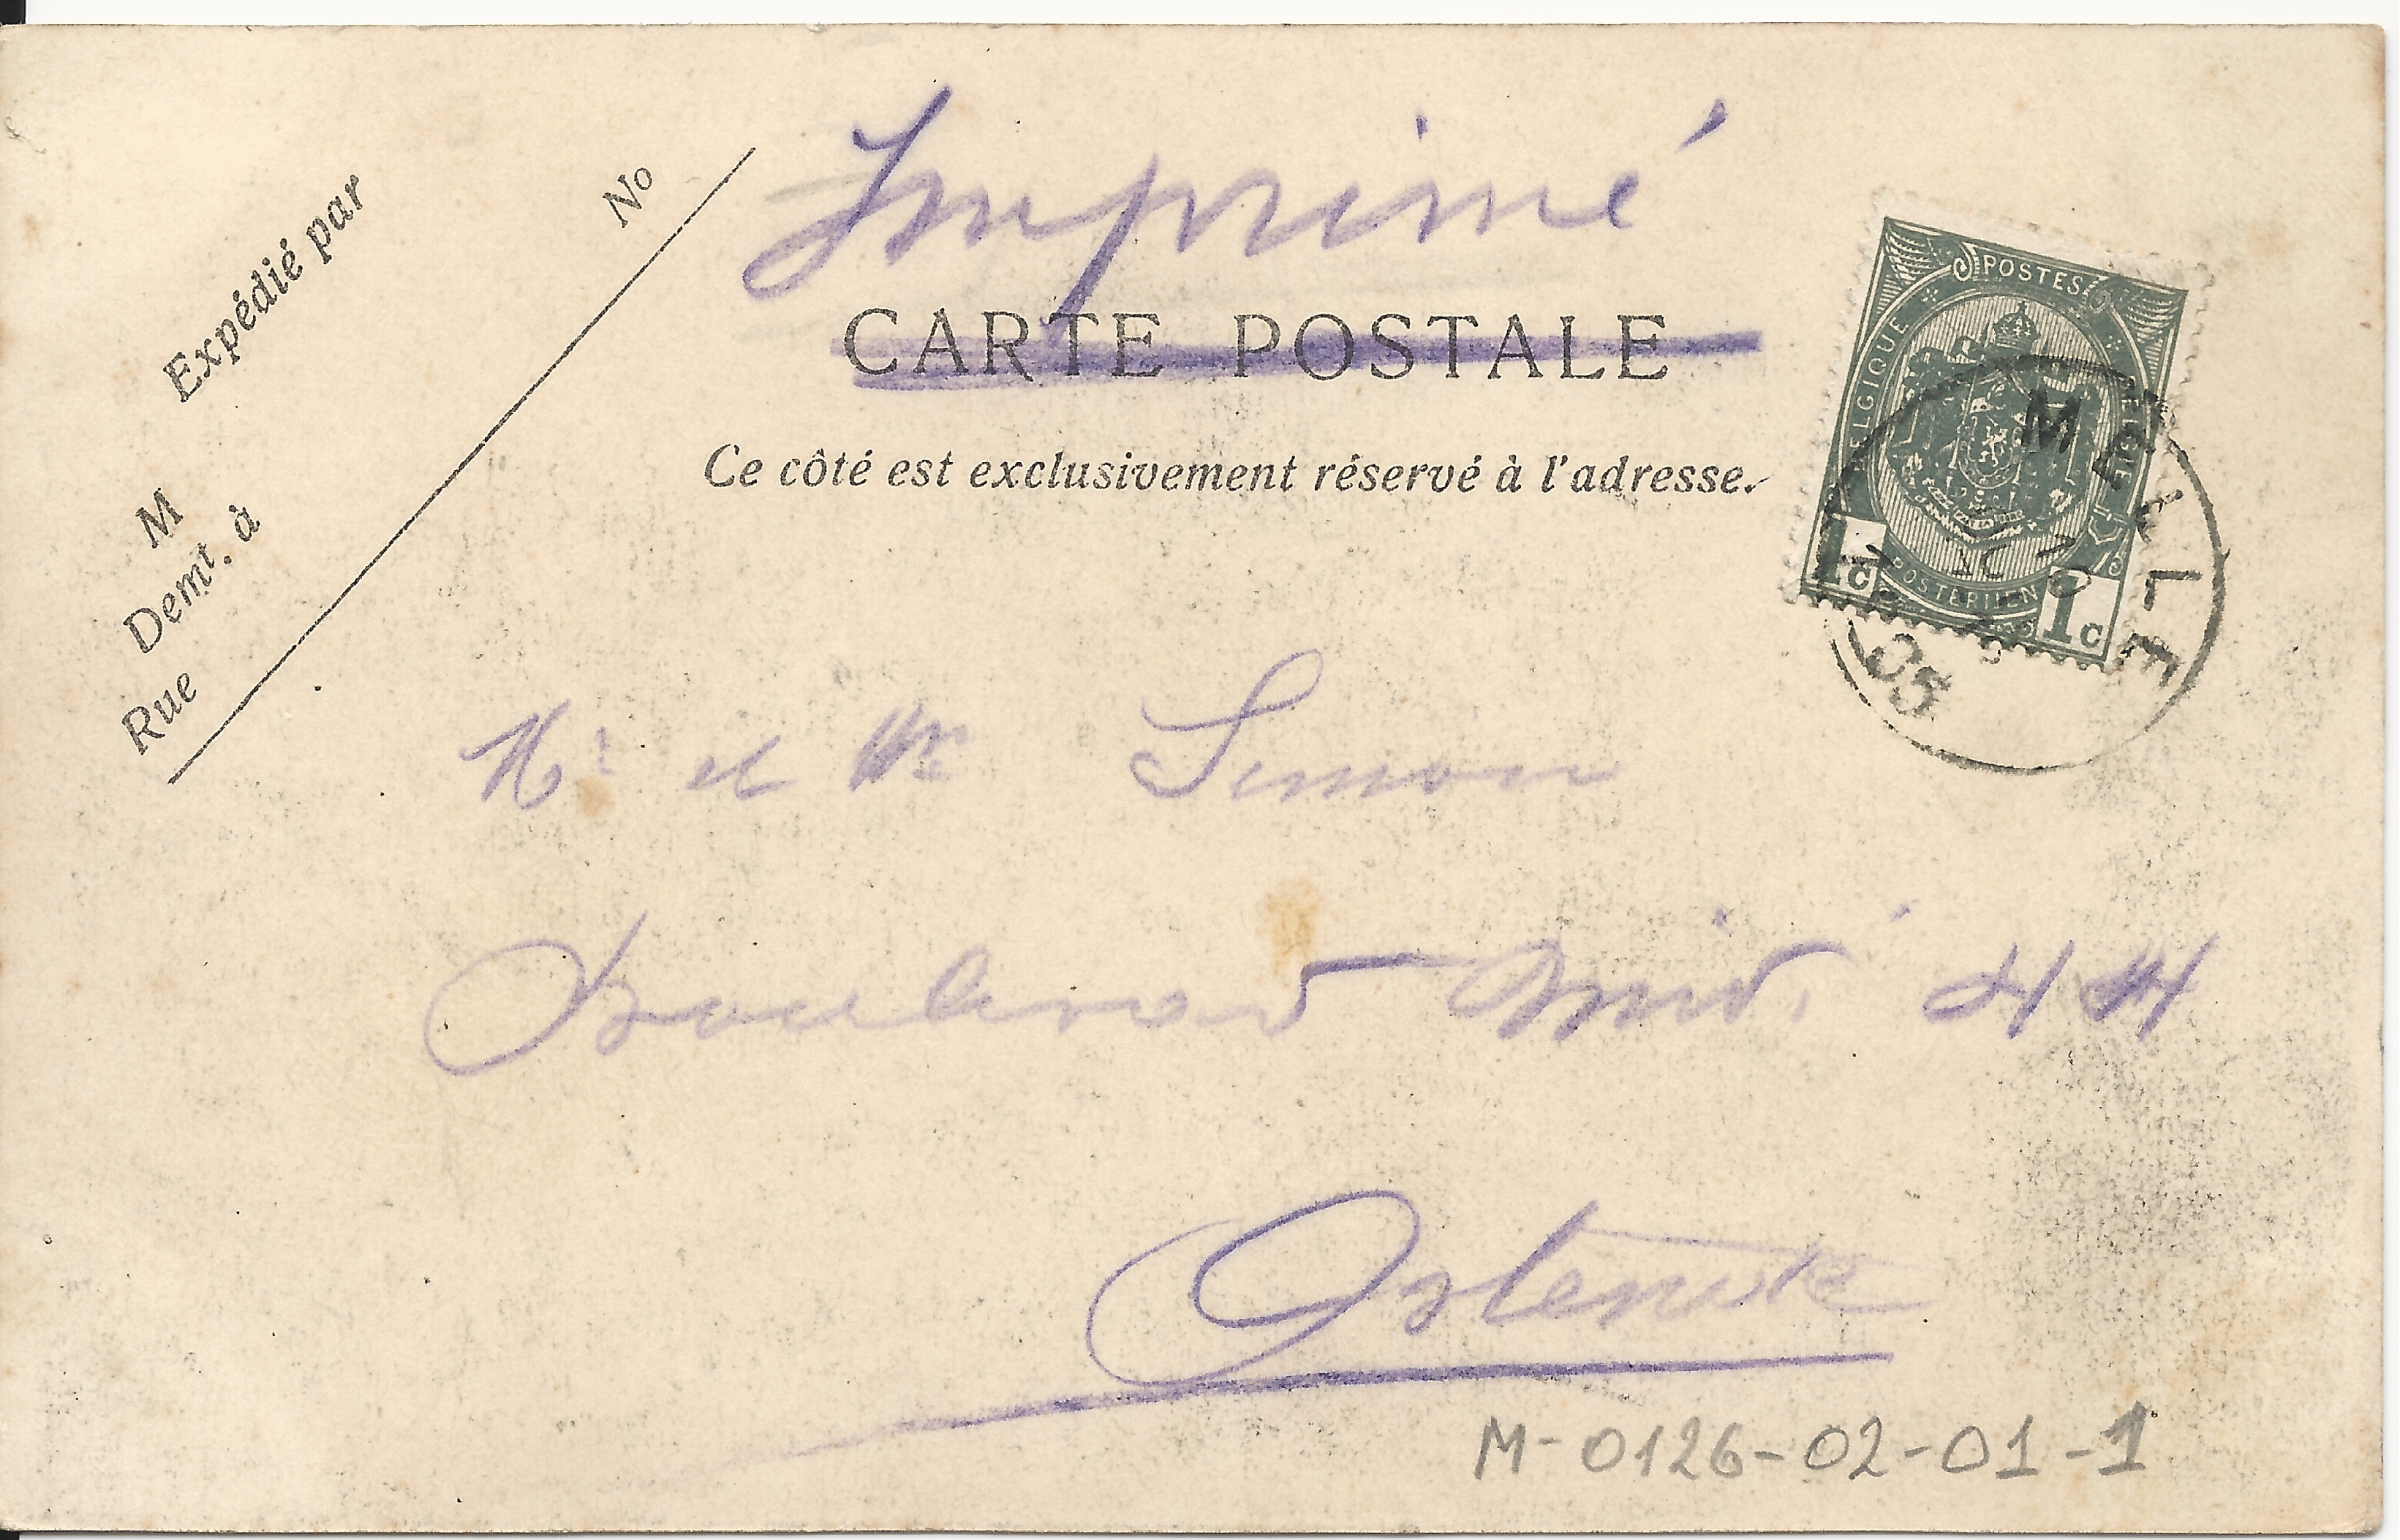 Imprimé
CARTE POSTALE
Ce côté est exclusivement réservé à l'adresse.
Expédié par
No
M
Demt. à
Rue
POSTES
BELGIQUE
POSTERIJEN
1c 1c
05
Mr et Mme Simon
Boulevard Midi 44
Ostende
M-0126-02-01-1